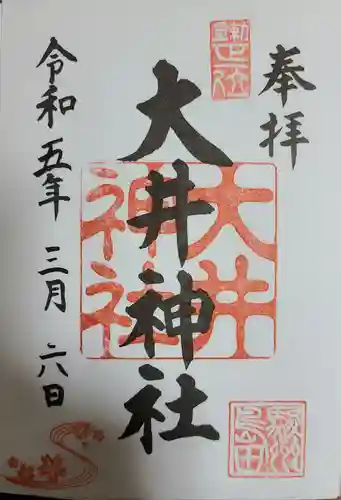 奉拝
大井神社
大井神社
令和五年 三月 六日
駿州島田